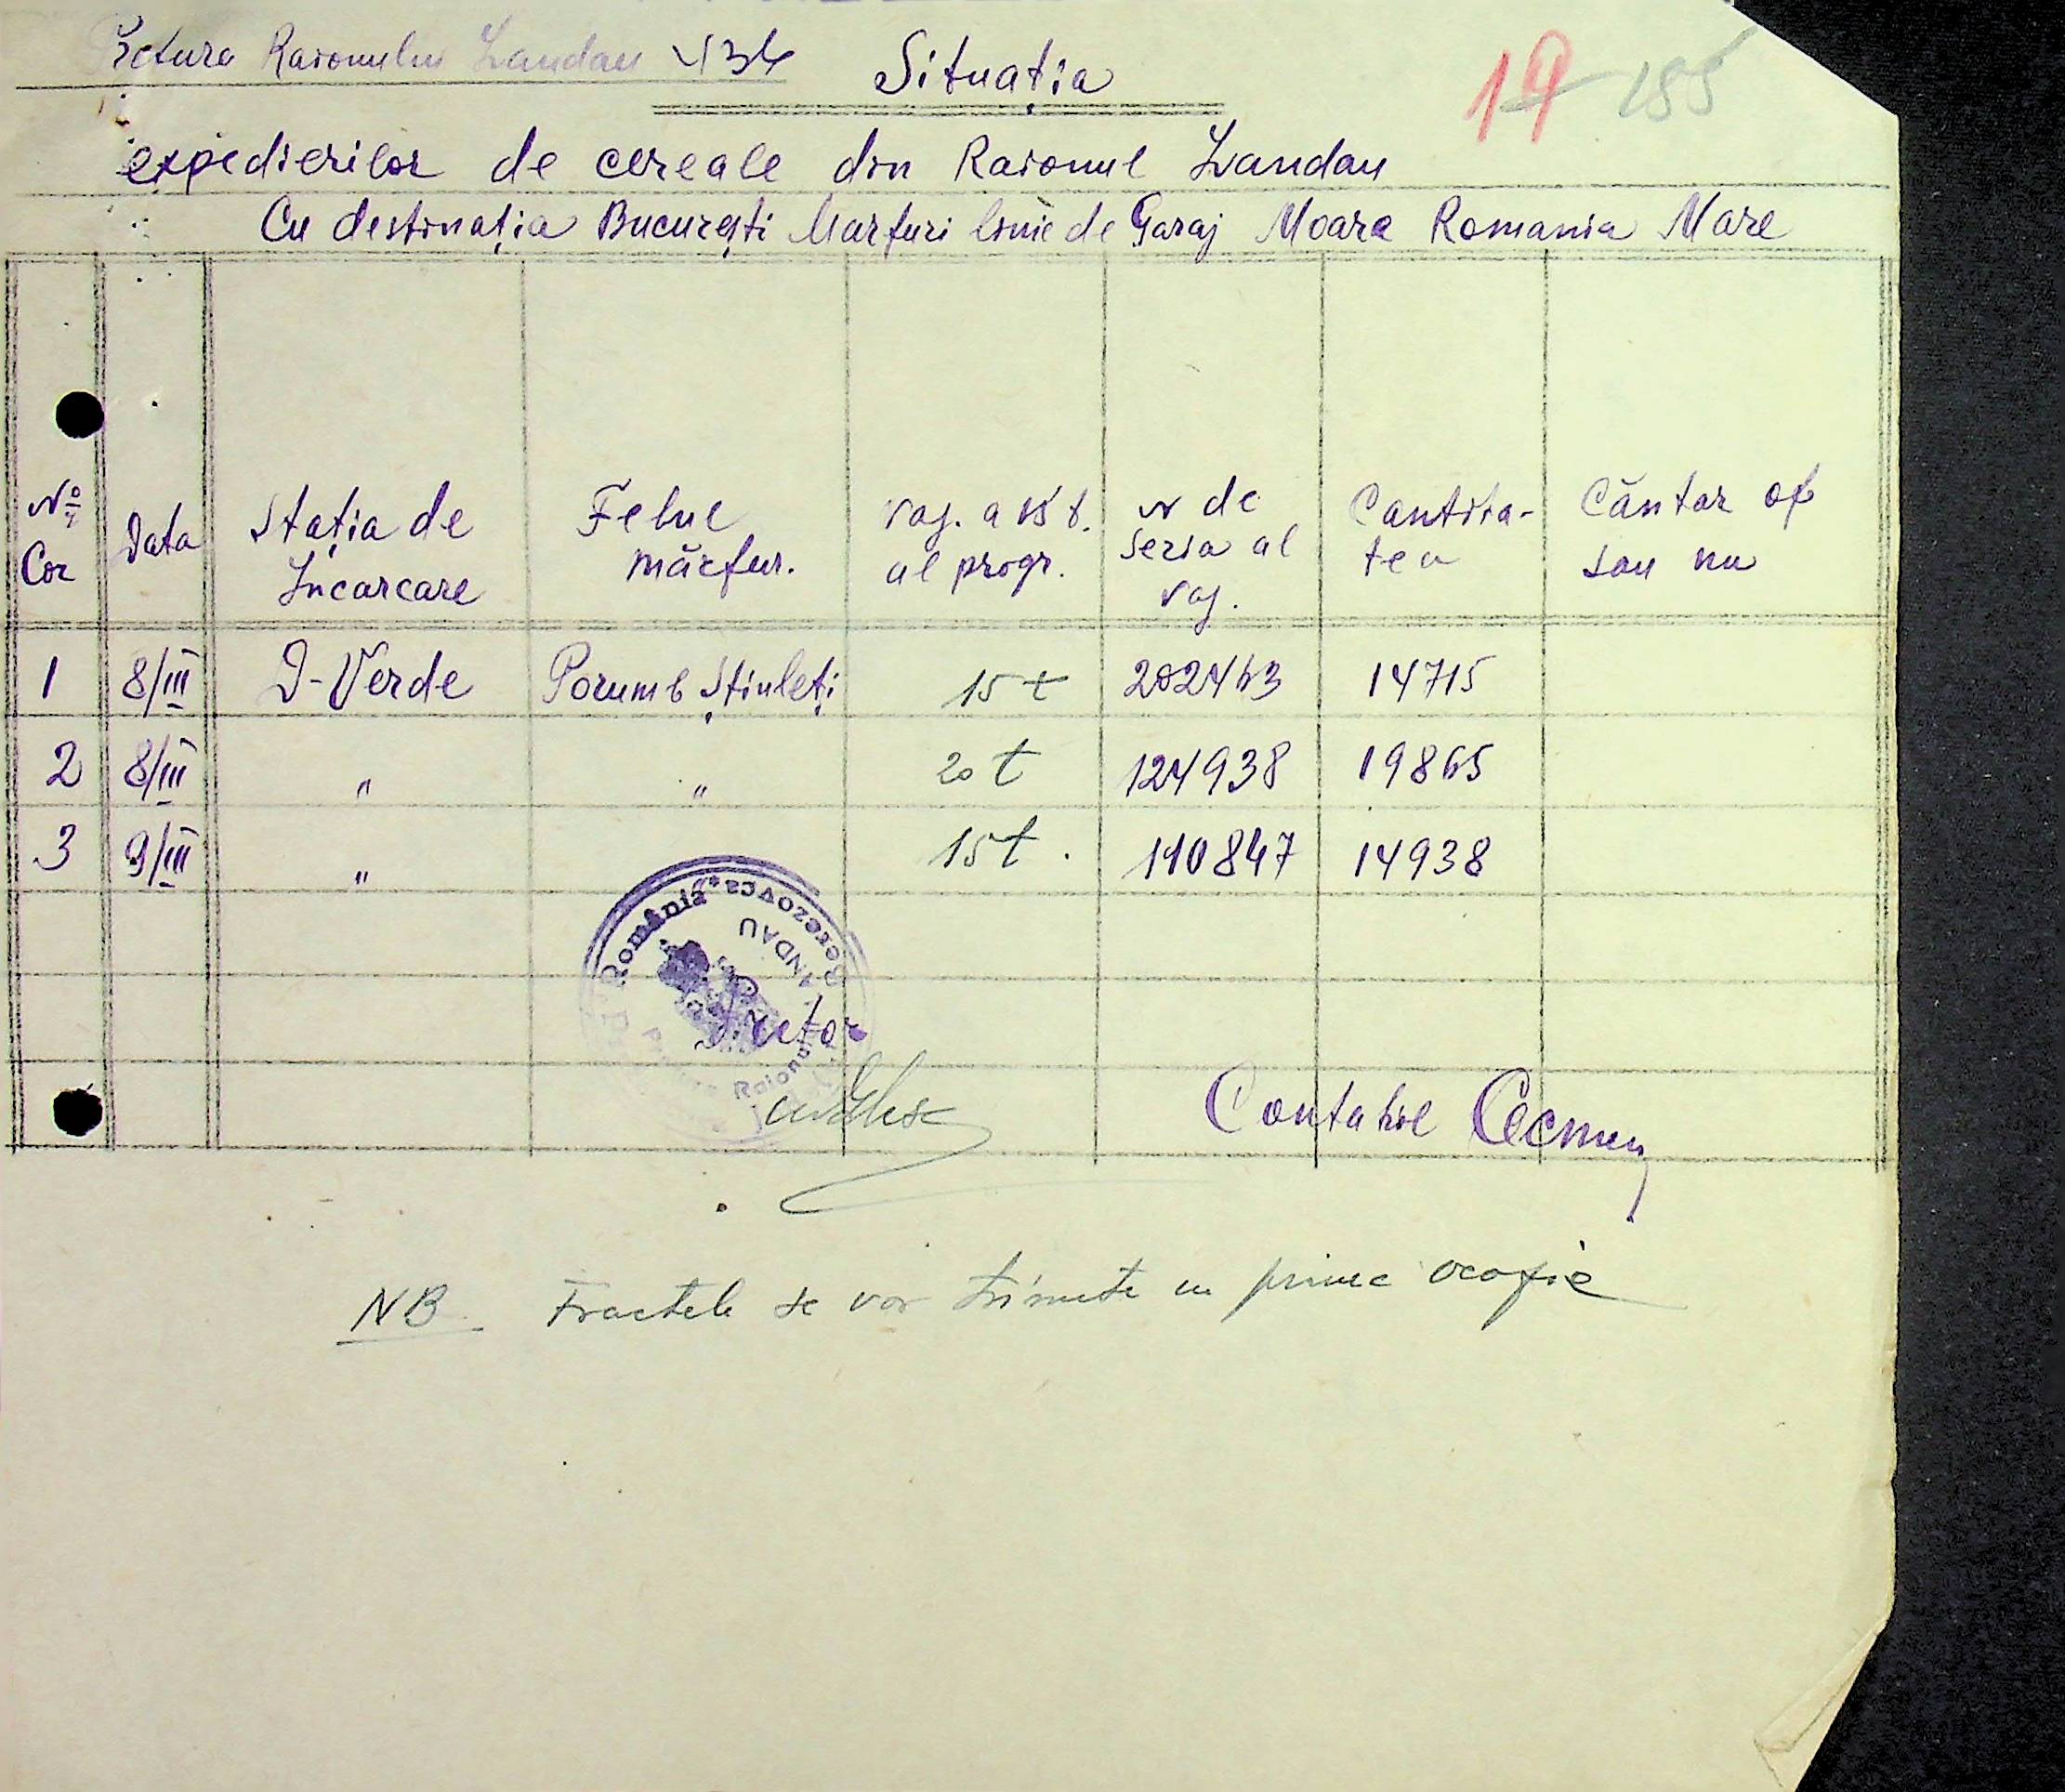 Pretura Raionului Landau 434
Situația
19 185
expedierilor de cereale din Raionul Landau
Cu destinația București Marfuri linie de Garaj Moara Romania Mare
No Cor
Data
Stația de Incarcare
Felul mărfur.
vag. a 15 t. al progr.
N de seria al vag.
Cantita-tea
Cântar of sau nu
1 8/III D-Verde Porumb știuleți 15 t 202463 14715
2 8/III " " 20 t 124938 19865
3 9/III " 15 t. 110847 14938
România
Berezovca
LANDAU
Raionului
Pretor
Contabil
NB. Fractele se vor trimete cu prima ocazie